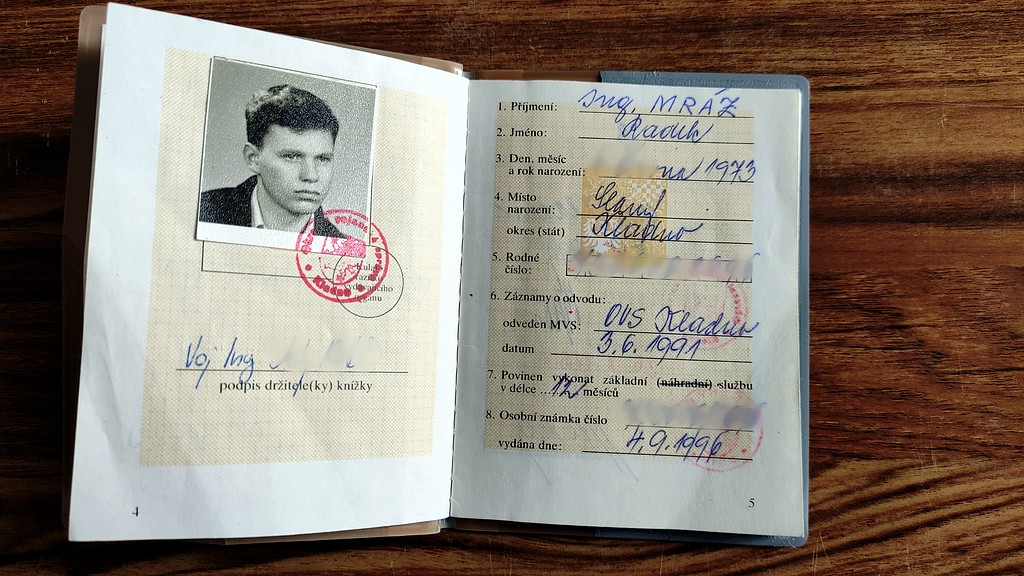 Voj Ing
podpis držitele(ky) knížky
4
1. Příjmení: Ing. MRÁZ
2. Jméno: Radek
3. Den, měsíc
a rok narození: 1973
4. Místo
narození: Slaný
okres (stát) Kladno
5. Rodné
číslo:
6. Záznamy o odvodu:
odveden MVS: OVS Kladno
datum 3.6.1991
7. Povinen vykonat základní (náhradní) službu
v délce ...12 měsíců
8. Osobní známka číslo
vydána dne: 4.9.1996
5